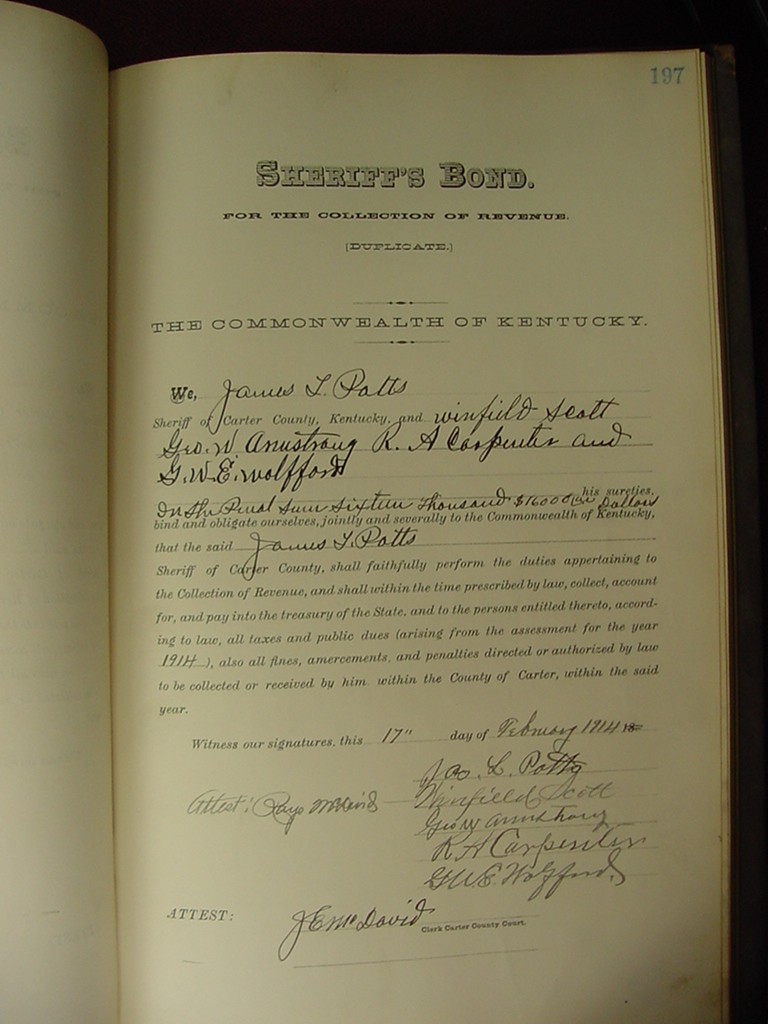 197
SHERIFF'S BOND.
FOR THE COLLECTION OF REVENUE.
(DUPLICATE.)
THE COMMONWEALTH OF KENTUCKY.
We, James L. Potts
Sheriff of Carter County, Kentucky, and Winfield Scott
Geo. W Armstrong R. A Carpenter and
G. W. E. Wolfford
his sureties,
In the Penal Sum Sixteen Thousand $16000 Dollars
bind and obligate ourselves, jointly and severally to the Commonwealth of Kentucky,
that the said James L. Potts
Sheriff of Carter County, shall faithfully perform the duties appertaining to
the Collection of Revenue, and shall within the time prescribed by law, collect, account
for, and pay into the treasury of the State. and to the persons entitled thereto, accord-
ing to law, all taxes and public dues (arising from the assessment for the year
1914), also all fines, amercements, and penalties directed or authorized by law
to be collected or received by him within the County of Carter, within the said
year.
Witness our signatures, this 17" day of February 1914 18
Jas. L. Potts
Attest: McDavid Winfield Scott
Geo W Armstrong
R A Carpenter
G W E. Wolfford
ATTEST: J E McDavid Clerk Carter County Court.